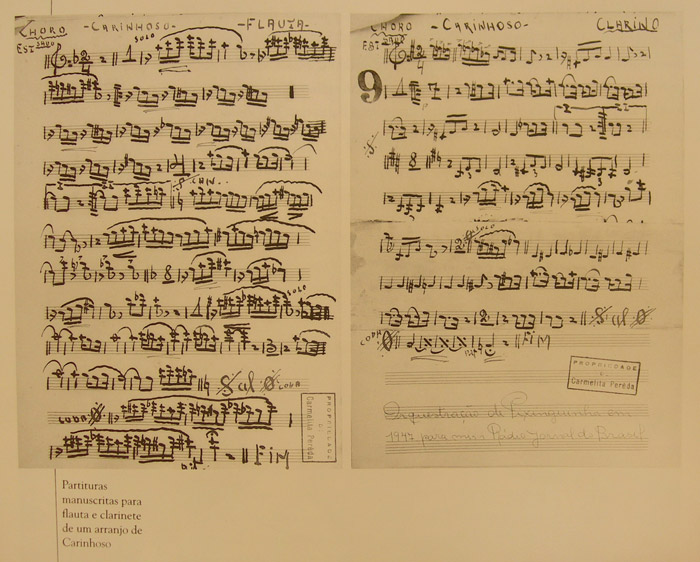 CHORO -CARINHOSO- -FLAUTA-
SOLO
SOLO
CODA
CODA
FIM
PROPRIEDADE
Carmelita Perêda
CHORO -CARINHOSO- CLARINO
9
SOLO
CODA
FIM
PROPRIEDADE
Carmelita Perêda
Orquestração de Pixinguinha em
1947 para Rádio Jornal do Brasil
Partituras
manuscritas para
flauta e clarinete
de um arranjo de
Carinhoso